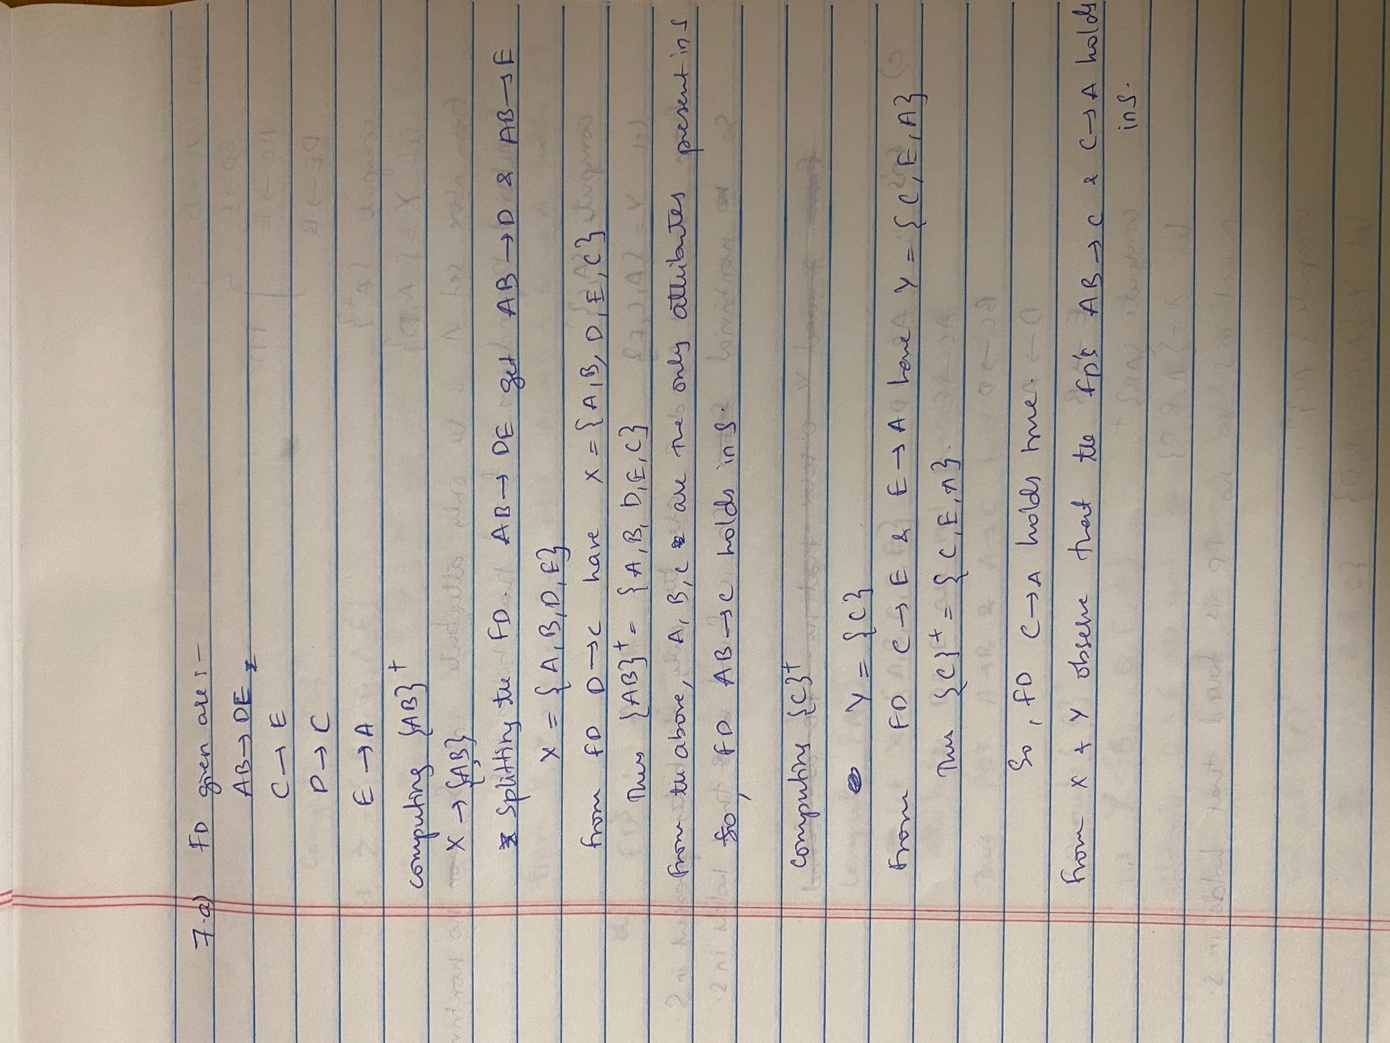 7.a) FD given are:-
AB→DE
C→E
D→C
E→A
Computing {AB}+
X→{AB}
Splitting the FD AB→DE get AB→D & AB→E
X = {A,B,D,E}
From FD D→C have X = {A,B,D,E,C}
Thus {AB}+ = {A,B,D,E,C}
From the above, A,B,C are the only attributes present in S
So, FD AB→C holds in S.
Computing {C}+
Y = {C}
From FD C→E & E→A have Y = {C,E,A}
Thus {C}+ = {C,E,A}.
So, FD C→A holds true.
From X + Y observe that the FD's AB→C & C→A holds
in S.